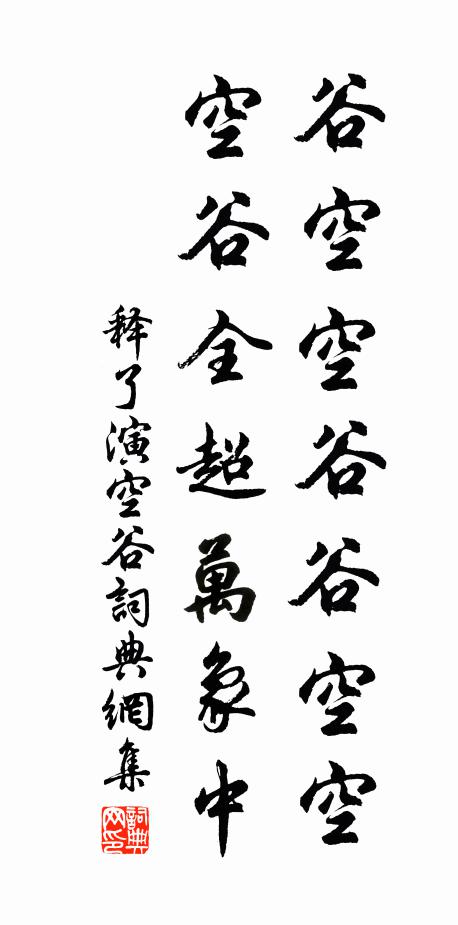 谷空空谷谷空空
空谷全超萬象中
釋了演空谷詞典網集
詞典网印